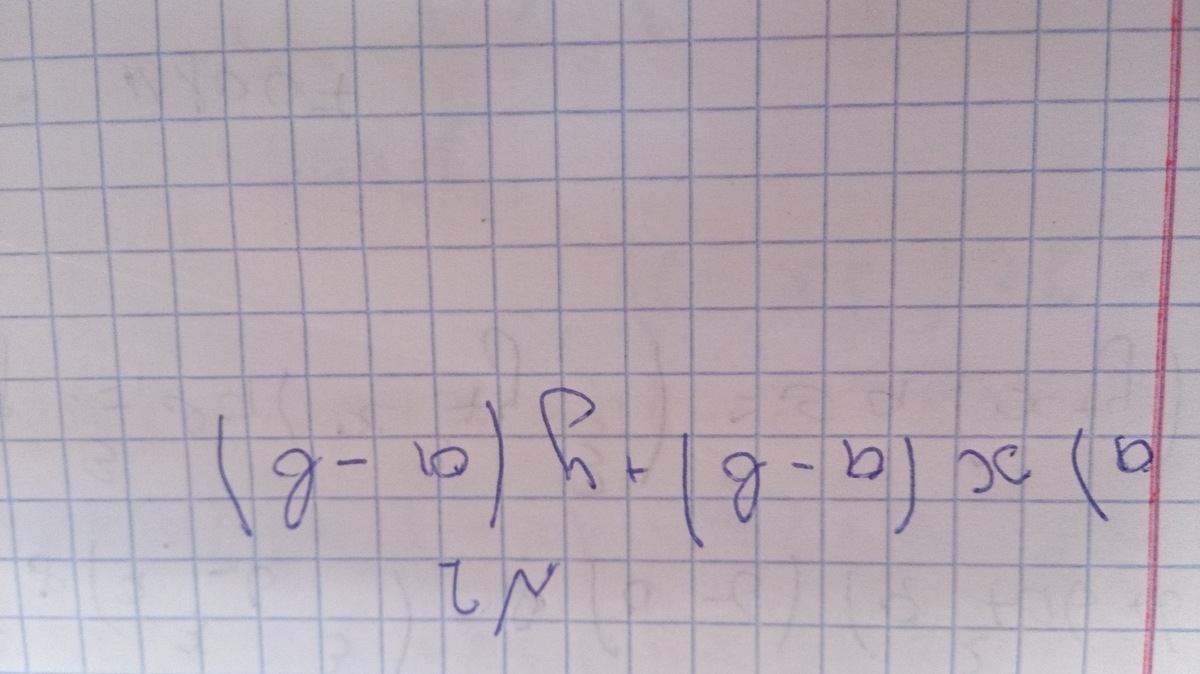 №2
а) x (a - b) + y (a - b)